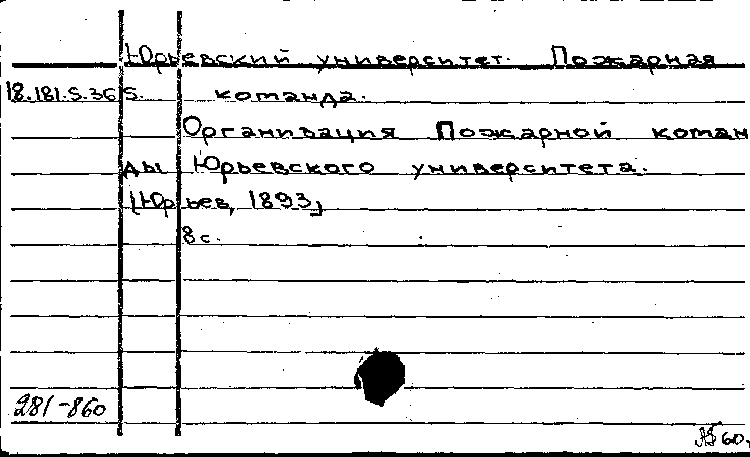 Юрьевский университет. Пожарная
18.181.S.36 S. команда.
Организация Пожарной коман
ды Юрьевского университета.
[Юрьев, 1893]
8 с.
281-860
60.